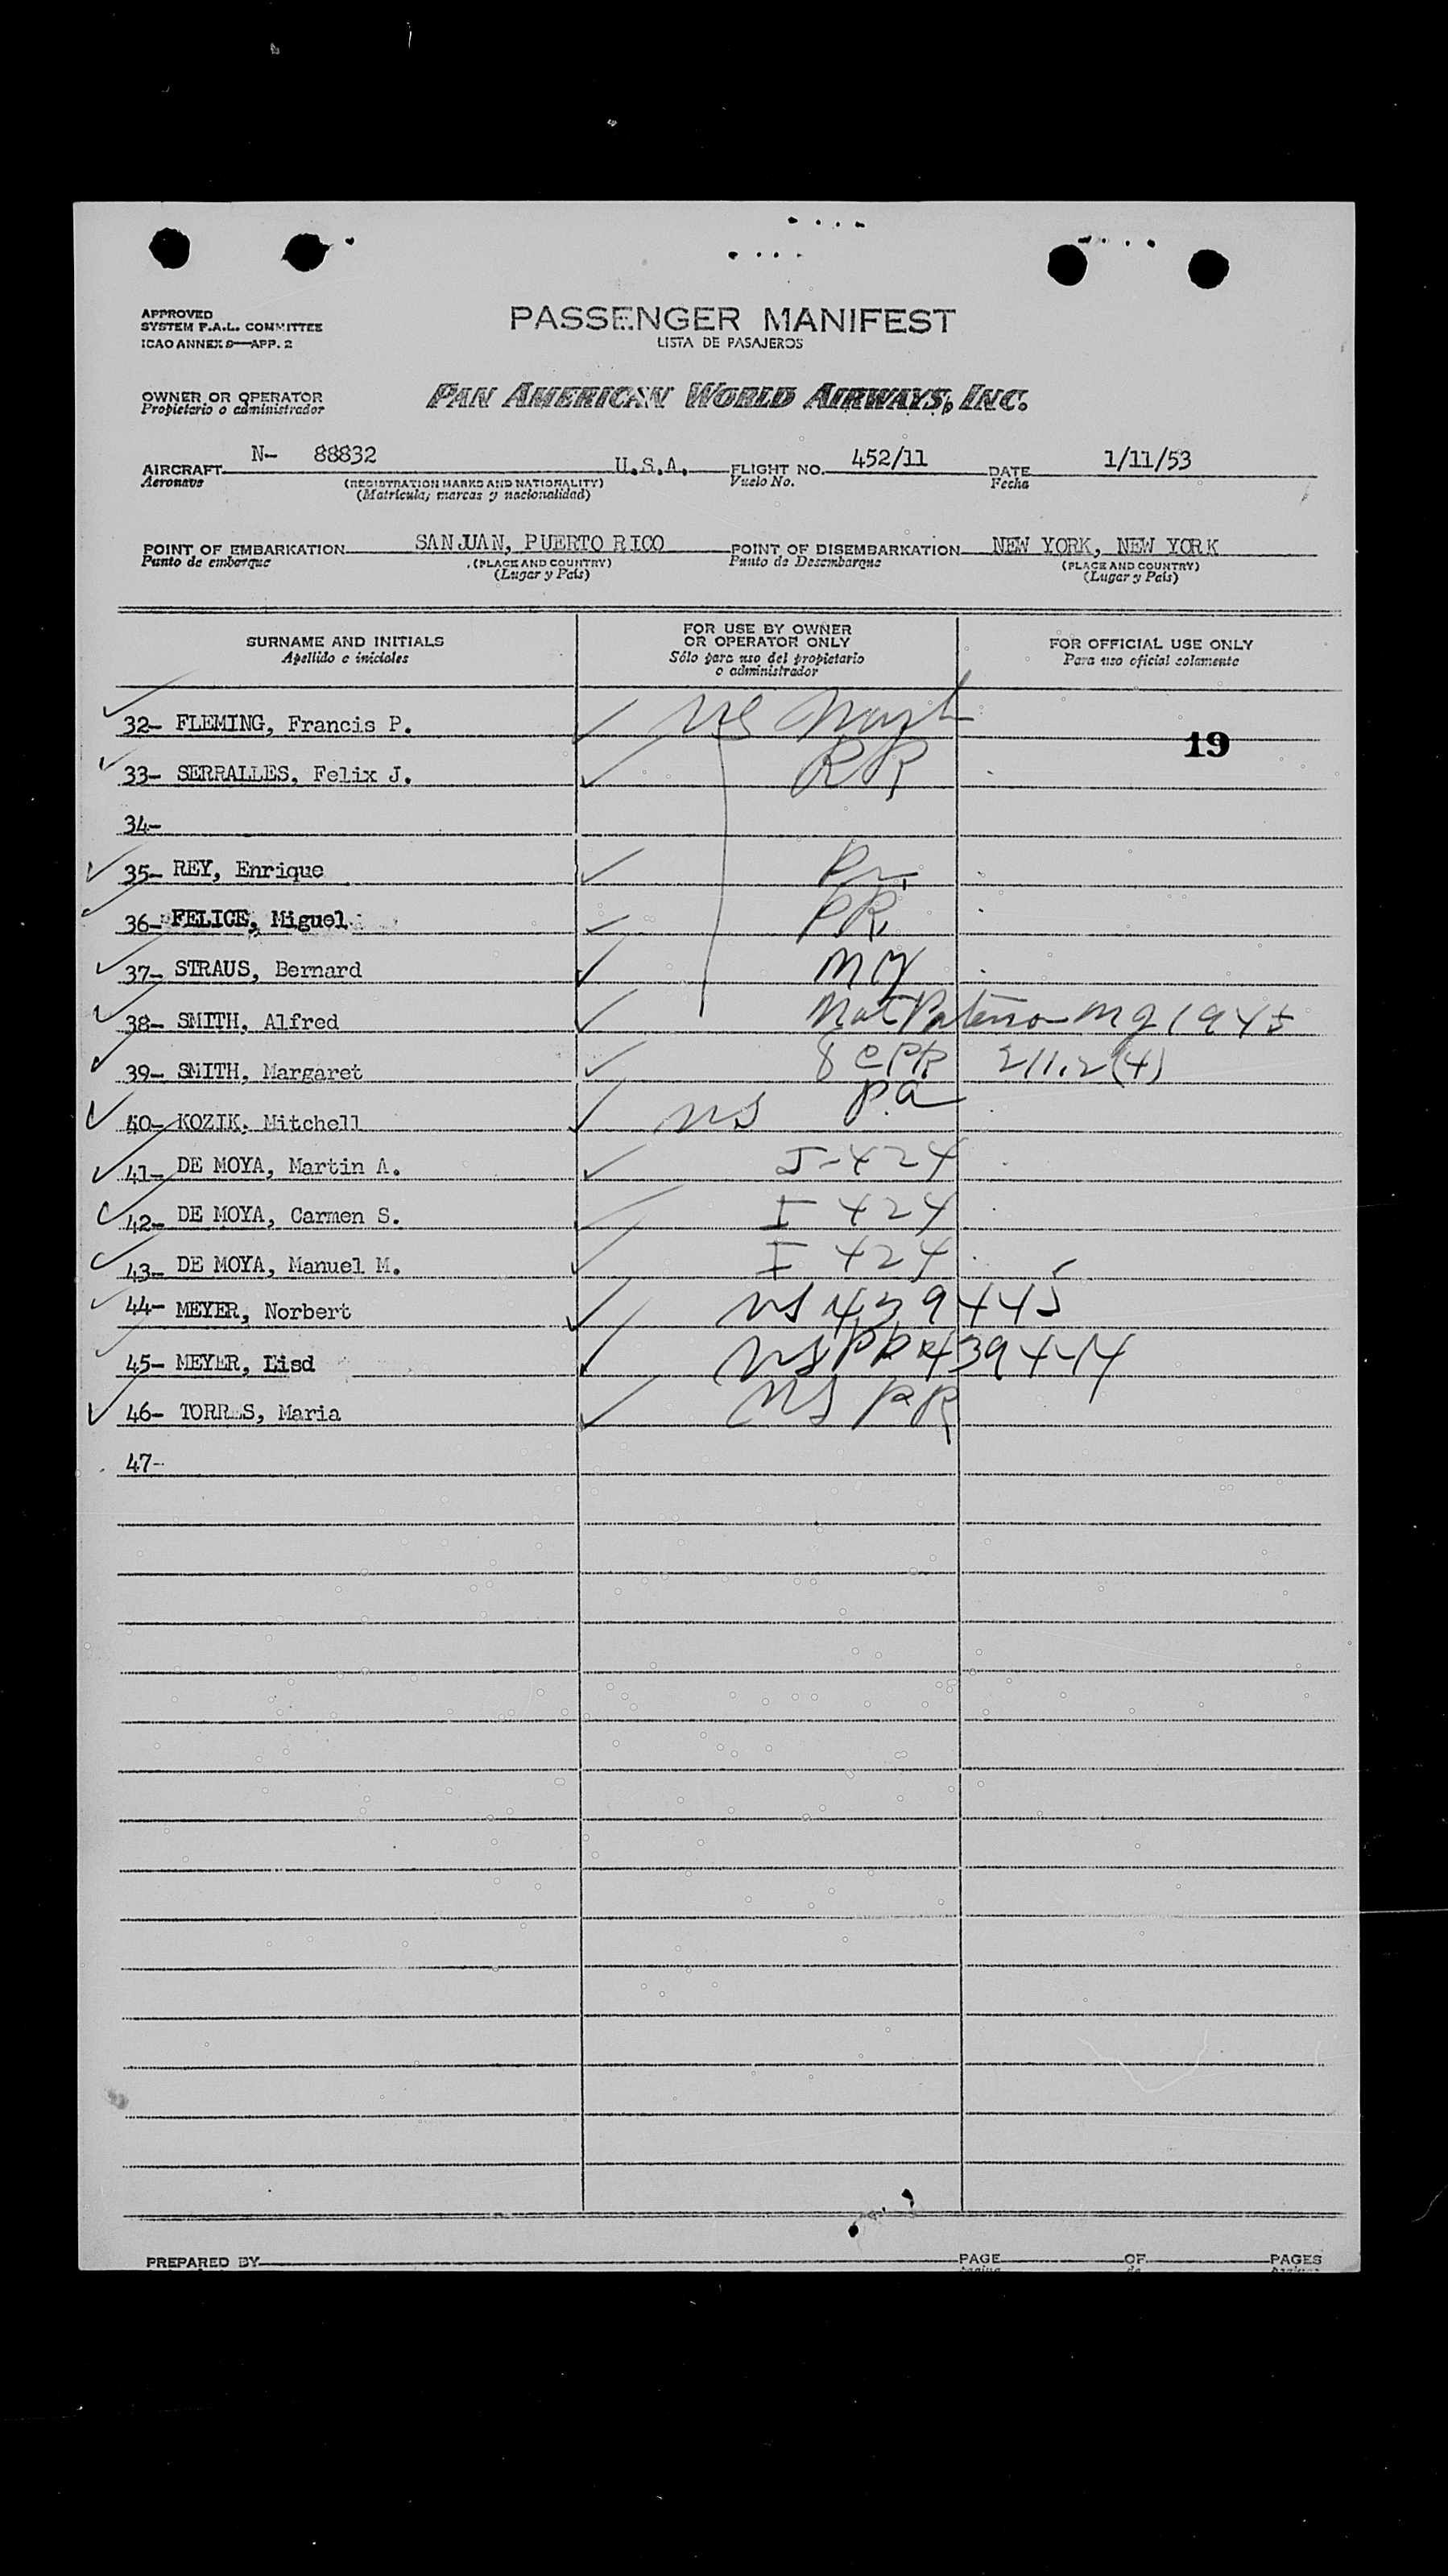 APPROVED
SYSTEM F.A.L. COMMITTEE
ICAO ANNEX 9—APP. 2
PASSENGER MANIFEST
LISTA DE PASAJEROS
OWNER OR OPERATOR
Propietario o administrador
PAN AMERICAN WORLD AIRWAYS, INC.
AIRCRAFT N- 88832 U.S.A. FLIGHT NO. 452/11 DATE 1/11/53
Aeronave (REGISTRATION MARKS AND NATIONALITY) Vuelo No. Fecha
(Matrícula, marcas y nacionalidad)
POINT OF EMBARKATION SAN JUAN, PUERTO RICO POINT OF DISEMBARKATION NEW YORK, NEW YORK
Punto de embarque (PLACE AND COUNTRY) Punto de Desembarque (PLACE AND COUNTRY)
(Lugar y País) (Lugar y País)
SURNAME AND INITIALS
Apellido e iniciales
FOR USE BY OWNER
OR OPERATOR ONLY
Sólo para uso del propietario
o administrador
FOR OFFICIAL USE ONLY
Para uso oficial solamente
32- FLEMING, Francis P. US
19
33- SERRALLES, Felix J.
34-
35- REY, Enrique
36- FELICE, Miguel PR.
37- STRAUS, Bernard NY
38- SMITH, Alfred Nat 1945
39- SMITH, Margaret 211.2(4)
40- KOZIK, Mitchell US Pa
41- DE MOYA, Martin A. I-424
42- DE MOYA, Carmen S. I 424
43- DE MOYA, Manuel M. I 424
44- MEYER, Norbert US 439445
45- MEYER, Lisd US PP 439444
46- TORRES, Maria US PR
47-
PREPARED BY PAGE OF PAGES